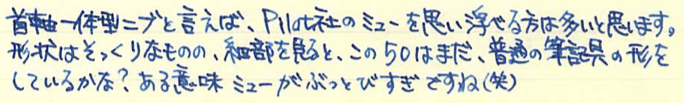 首軸一体型ニブと言えば、Pilot社のミューを思い浮べる方は多いと思います。
形状はそっくりなものの、細部を見ると、この50はまだ、普通の筆記具の形を
しているかな？ある意味ミューがぶっとびすぎですね(笑)